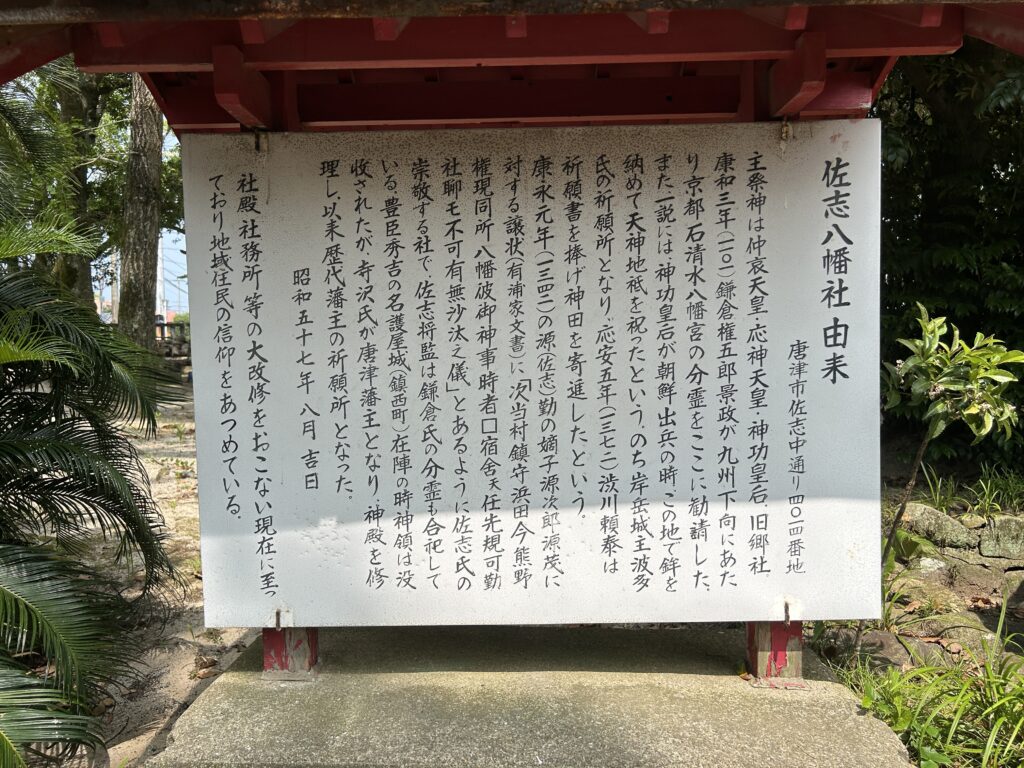 佐志八幡社由来
唐津市佐志中通り四〇一四番地
主祭神は仲哀天皇・応神天皇・神功皇后、旧郷社
康和三年(一一〇一)鎌倉権五郎景政が九州下向にあた
り京都石清水八幡宮の分霊をここに勧請した、
また一説には、神功皇后が朝鮮出兵の時この地で鉾を
納めて天神地祗を祝ったという、のち岸岳城主波多
氏の祈願所となり、応安五年(一三七二)渋川頼泰は
祈願書を捧げ神田を寄進したという。
康永元年(一三四二)の源(佐志)勤の嫡子源次郎源茂に
対する譲状(有浦家文書)に「次当村鎮守浜田今熊野
権現同所八幡破御神事時者□宿舎天任先規可勤
社聊モ不可有無沙汰之儀」とあるように佐志氏の
崇敬する社で、佐志将監は鎌倉氏の分霊も合祀して
いる、豊臣秀吉の名護屋城(鎮西町)在陣の時神領は没
収されたが、寺沢氏が唐津藩主となり、神殿を修
理し、以来歴代藩主の祈願所となった。
昭和五十七年八月吉日
社殿社務所等の大改修をおこない現在に至っ
ており地域住民の信仰をあつめている。